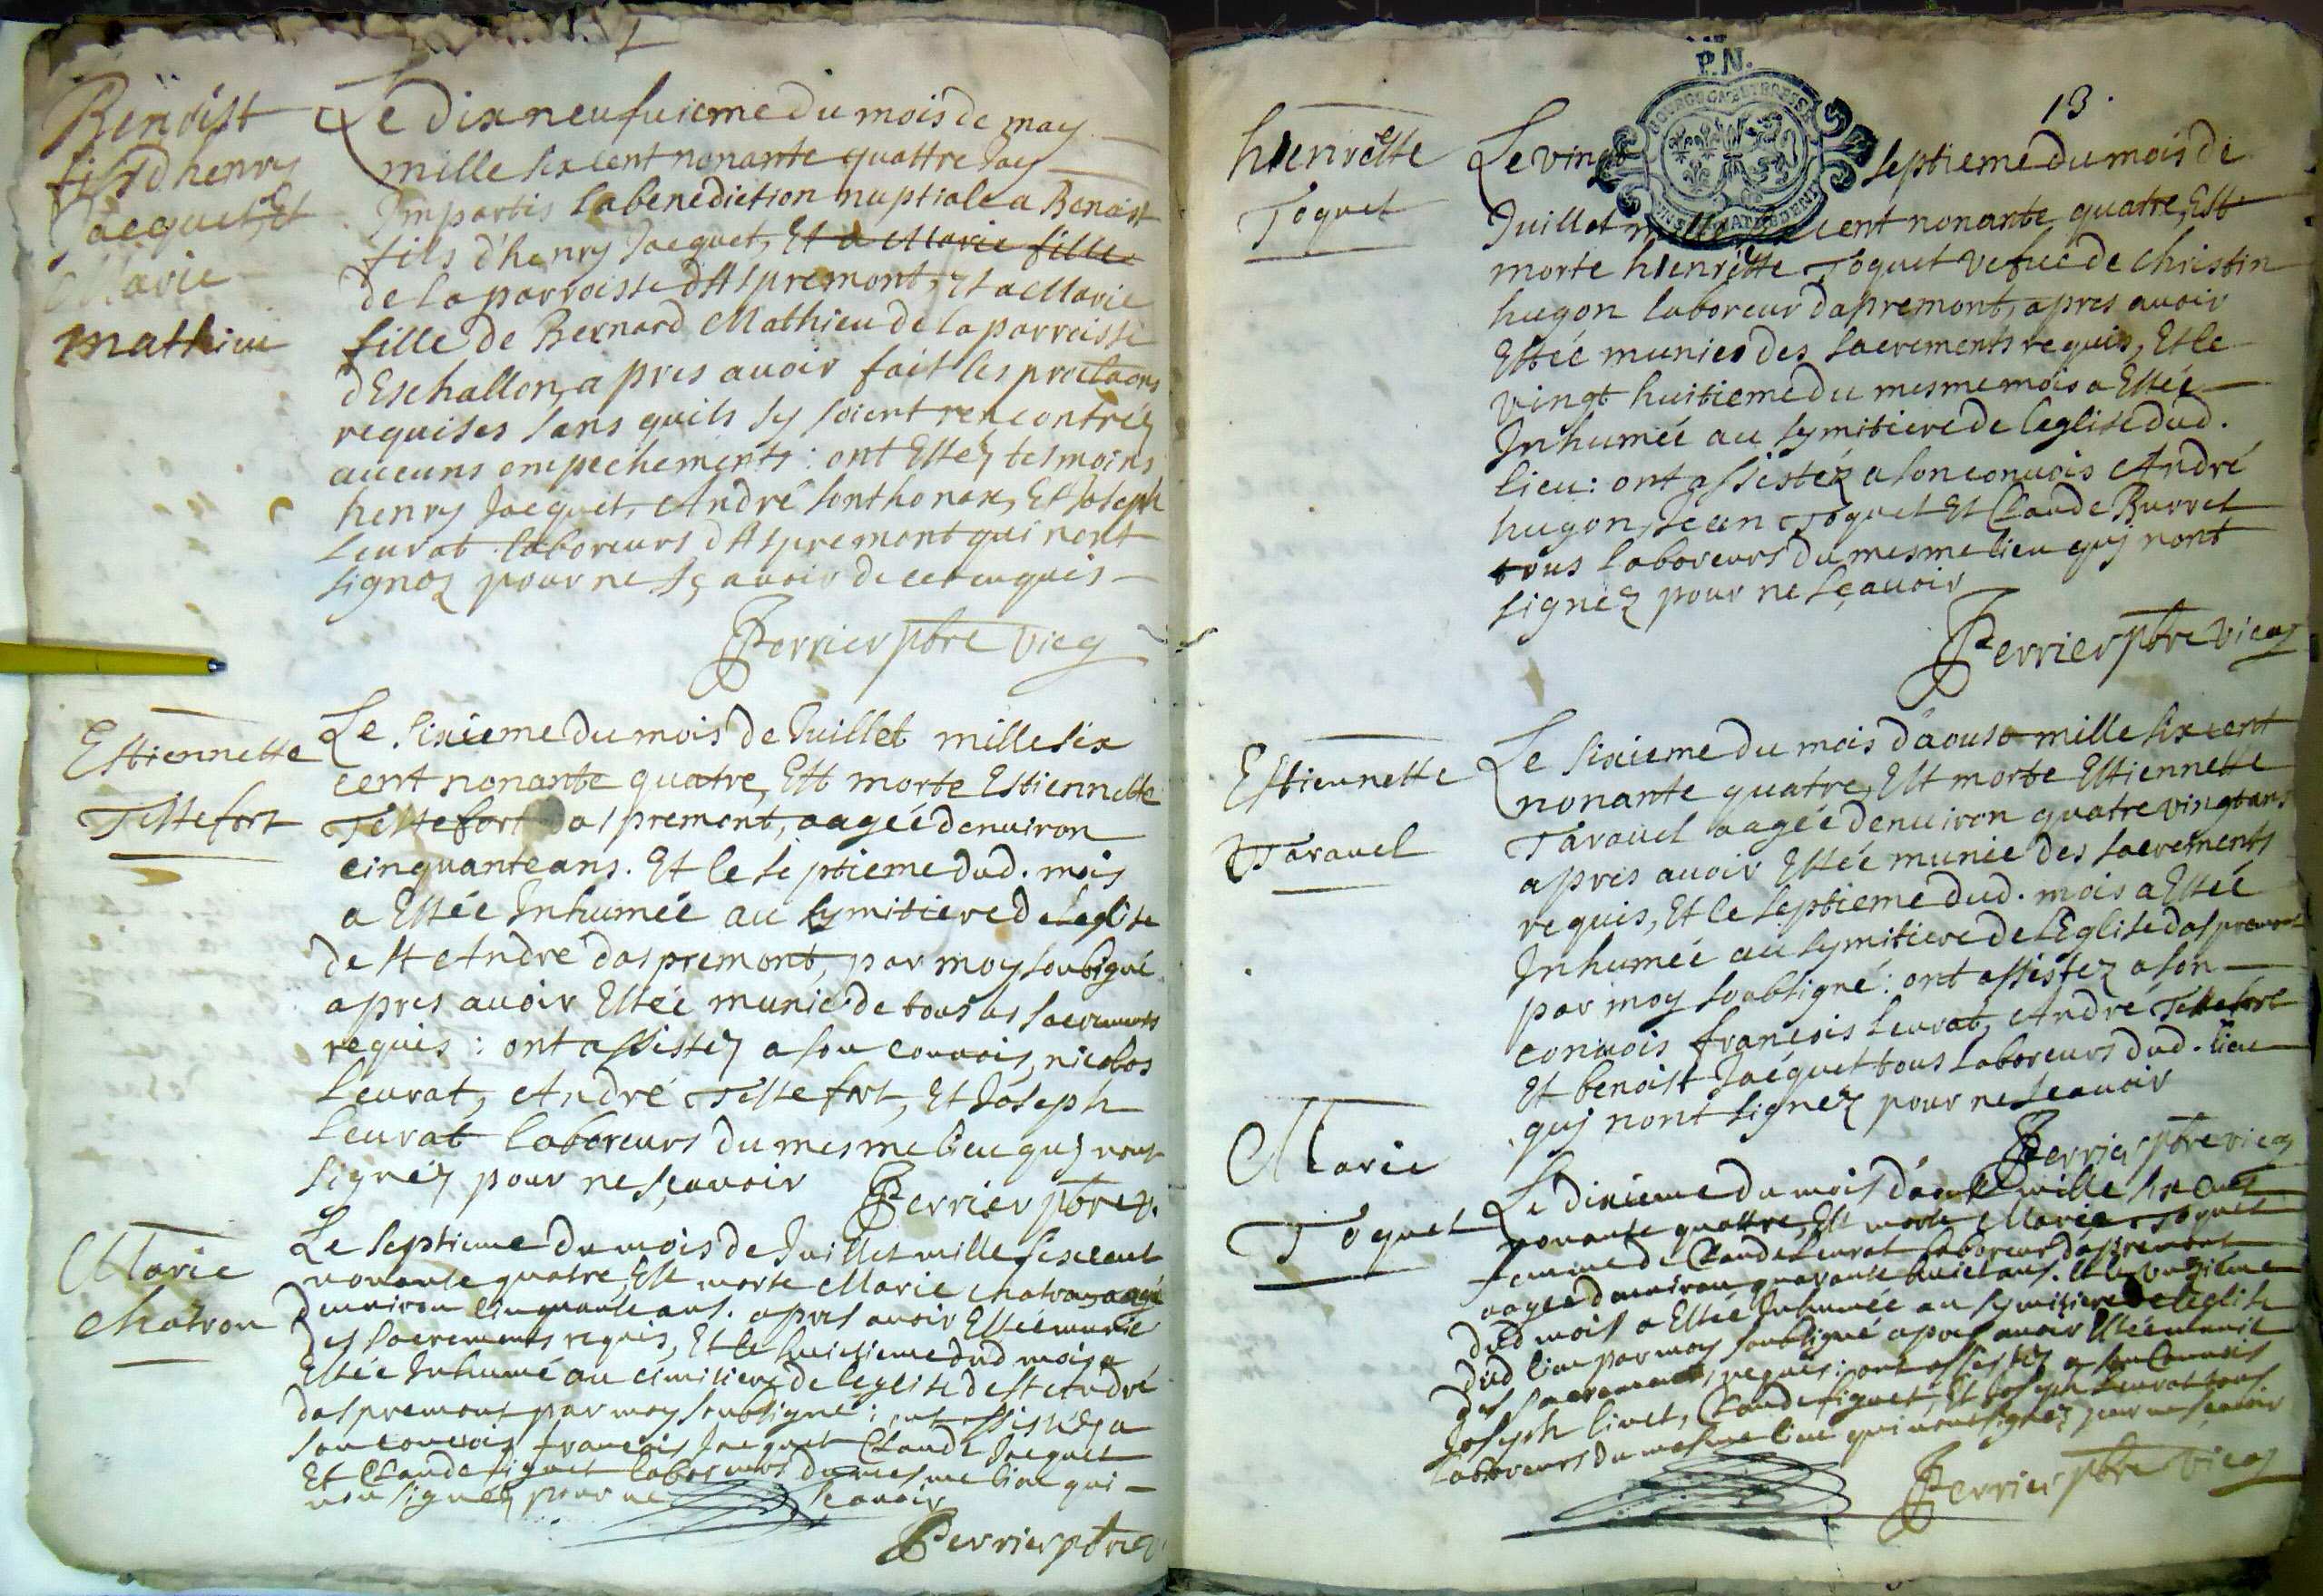 Benoist
fils d'henry
Jacquet, Et
Marie
mathieu
Le dixneufuieme du mois de may
mille six cent nonante quattre Jay
Imparti la benediction nuptiale a Benoist
fils d'henry Jacquet, Et a Marie fille
de la parroisse d'Aspremont, Et a Marie
fille de Bernard Mathieu de la parroisse
d'Eschallon, apres auoir fait les proclaons
requises sans quils sy soient rencontréz
aucuns empechements : ont Estez tesmoins
henry Jacquet, André Sonthonax, Et Joseph
Leurat laboreurs d'Aspremont qui nont
signez pour ne sçauoir de ce enquis
Perrier pbre vicq
Estiennette
Testefort
Le sixieme du mois de Juillet mille six
cent nonante quatre, Est morte Estiennette
Testefort daspremont, aagée denuiron
cinquante ans. Et le septieme dud. mois
a Estée Inhumée au symitiere de leglise
de st André daspremont, par moy soubsigné
apres auoir Estée munie de tous les sacrements
requis : ont assistez a son conuois, nicolas
Leurat, André Testefort, Et Joseph
Leurat laboreurs du mesme lieu quj nont
signéz pour ne sçauoir Perrier pbre v.
Marie
chatron
Le septieme du mois de Juillet mille six cent
nonante quatre, Est morte Marie chatron aagée
denuiron cinquante ans. apres auoir Estée munie
des sacrements requis, Et le huictieme dud mois a
Estée Inhumé au cimitiere de leglise de st André
daspremont par moy soubsigné : ont assistéz a
son conuois francois Jacquet Claude Jacquet
Et Claude figuet laboreurs du mesme lieu qui
non signéz pour ne scauoir
Perrier pbre v.
P.N.
13.
henriette
Toquet
Le vingt septieme du mois de
Juillet mille six cent nonante quatre, Est
morte henriette Toquet vefue de christin
hugon laboreur dapremont, apres auoir
Estée munies des sacrements requis, Et le
vingt huitieme du mesme mois a Estée
Inhumée au symitiere de leglise dud.
lieu : ont assistéz a son conuois André
hugon, Jean Toquet Et Claude Burret
tous laboreurs du mesme lieu quj nont
signéz pour ne sçauoir
Perrier pbre vicq
Estiennette
Tarauel
Le sixieme du mois d'aoust mille six cent
nonante quatre, Est morte Estiennette
Tarauel aagée denuiron quatre vingt ans
apres auoir Estée munie des sacrements
requis, Et le septieme dud. mois a Estée
Inhumée au symitiere de l'Eglise daspremont
par moy soubsigné : ont assistez a son
conuois francois Leurat, André Testefort
Et benoist Jacquet tous laboreurs dud. lieu
quj nont signéz pour ne scauoir
Perrier pbre vicq
Marie
Toquet
Le dixieme du mois d'aoust mille six cent
nonante quattre, Est morte Marie Toquet
femme de Claude Leurat laboreur daspremont
aagée denuiron quarante huict ans. Et le unzieme
dud mois a Estée Inhumée au symitiere de leglise
dud lieu par moy soubsigné apres auoir Estée munie
des sacrements requis : ont assistéz a son Conuois
Joseph liuet, Claude figuet, Et Joseph Leurat tous
laboreurs du mesme lieu qui nont signéz pour ne sçauoir
Perrier pbre vicq